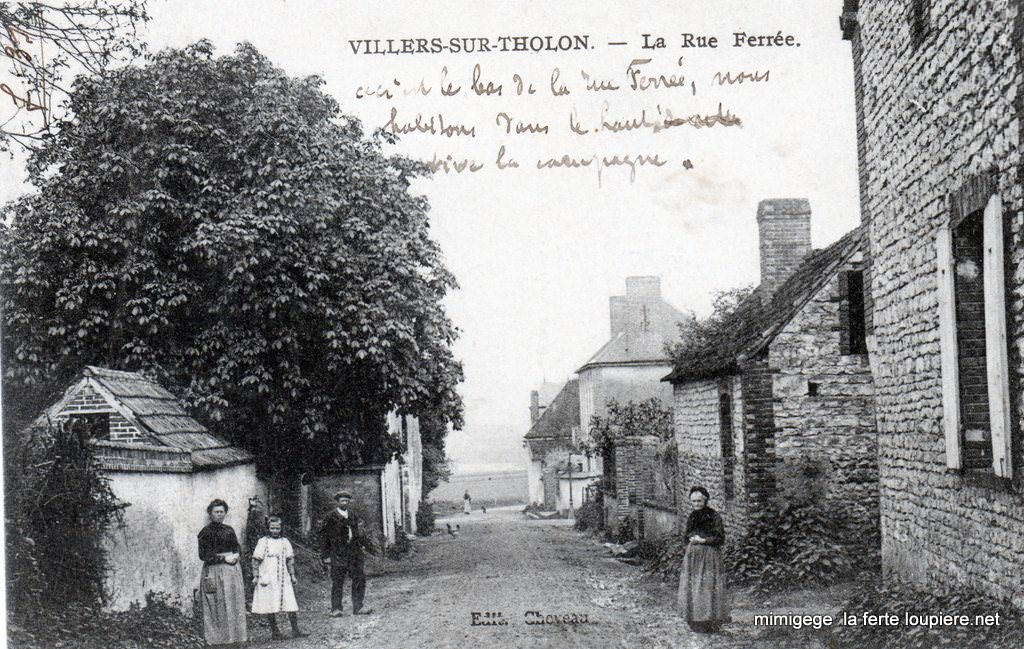 VILLERS-SUR-THOLON. — La Rue Ferrée.
ceci est le bas de la rue Ferrée, nous
habitons dans le haut
vive la campagne.
Edit. Choveau
mimigege la ferte loupiere.net